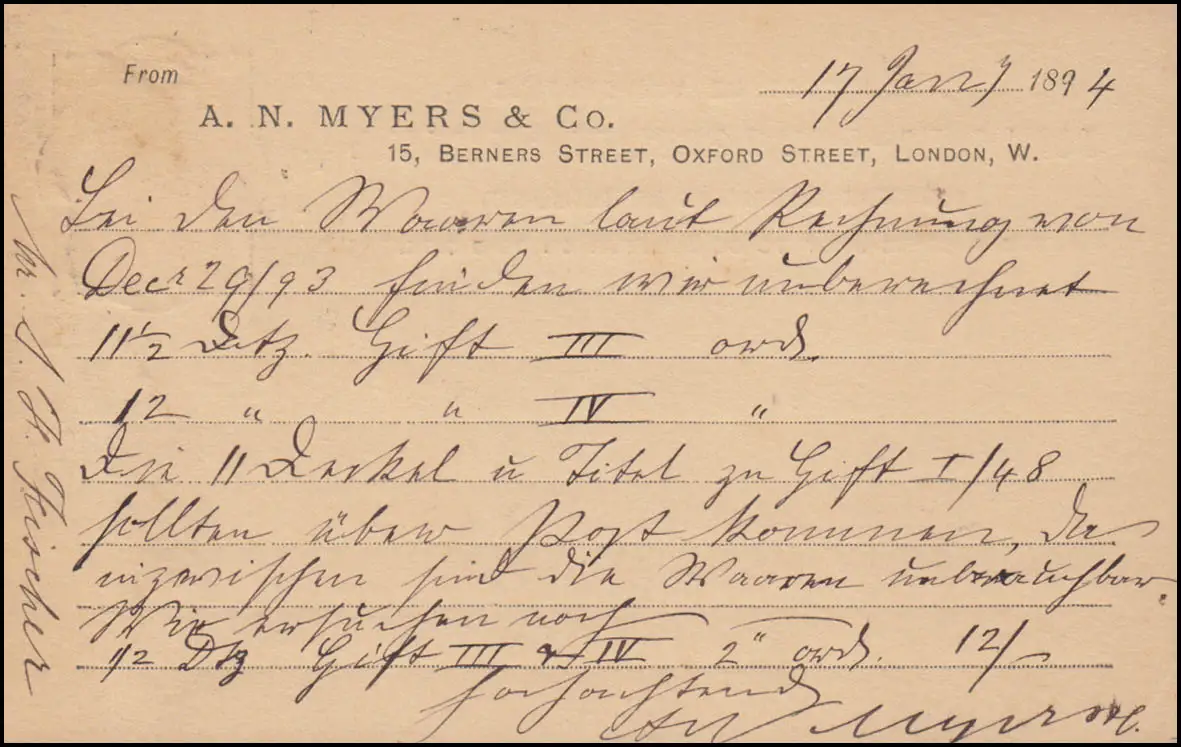 From
17 Jany 1894
A. N. MYERS & Co.
15, BERNERS STREET, OXFORD STREET, LONDON, W.
Bei den Waaren laut Rechnung von
Decr 29/93 finden wir unberechnet
11 1/2 Dtz. Gift III ord.
12 " " IV "
Die 11 Deckel u Titel zu Gift I/48
sollten über Post kommen, da
inzwischen sind die Waaren unbrauchbar.
Wir ersuchen noch
1/2 Dtz Gift III & IV 2" ord. 12/-
Hochachtend
Myers
Mr. S. F. Fischer